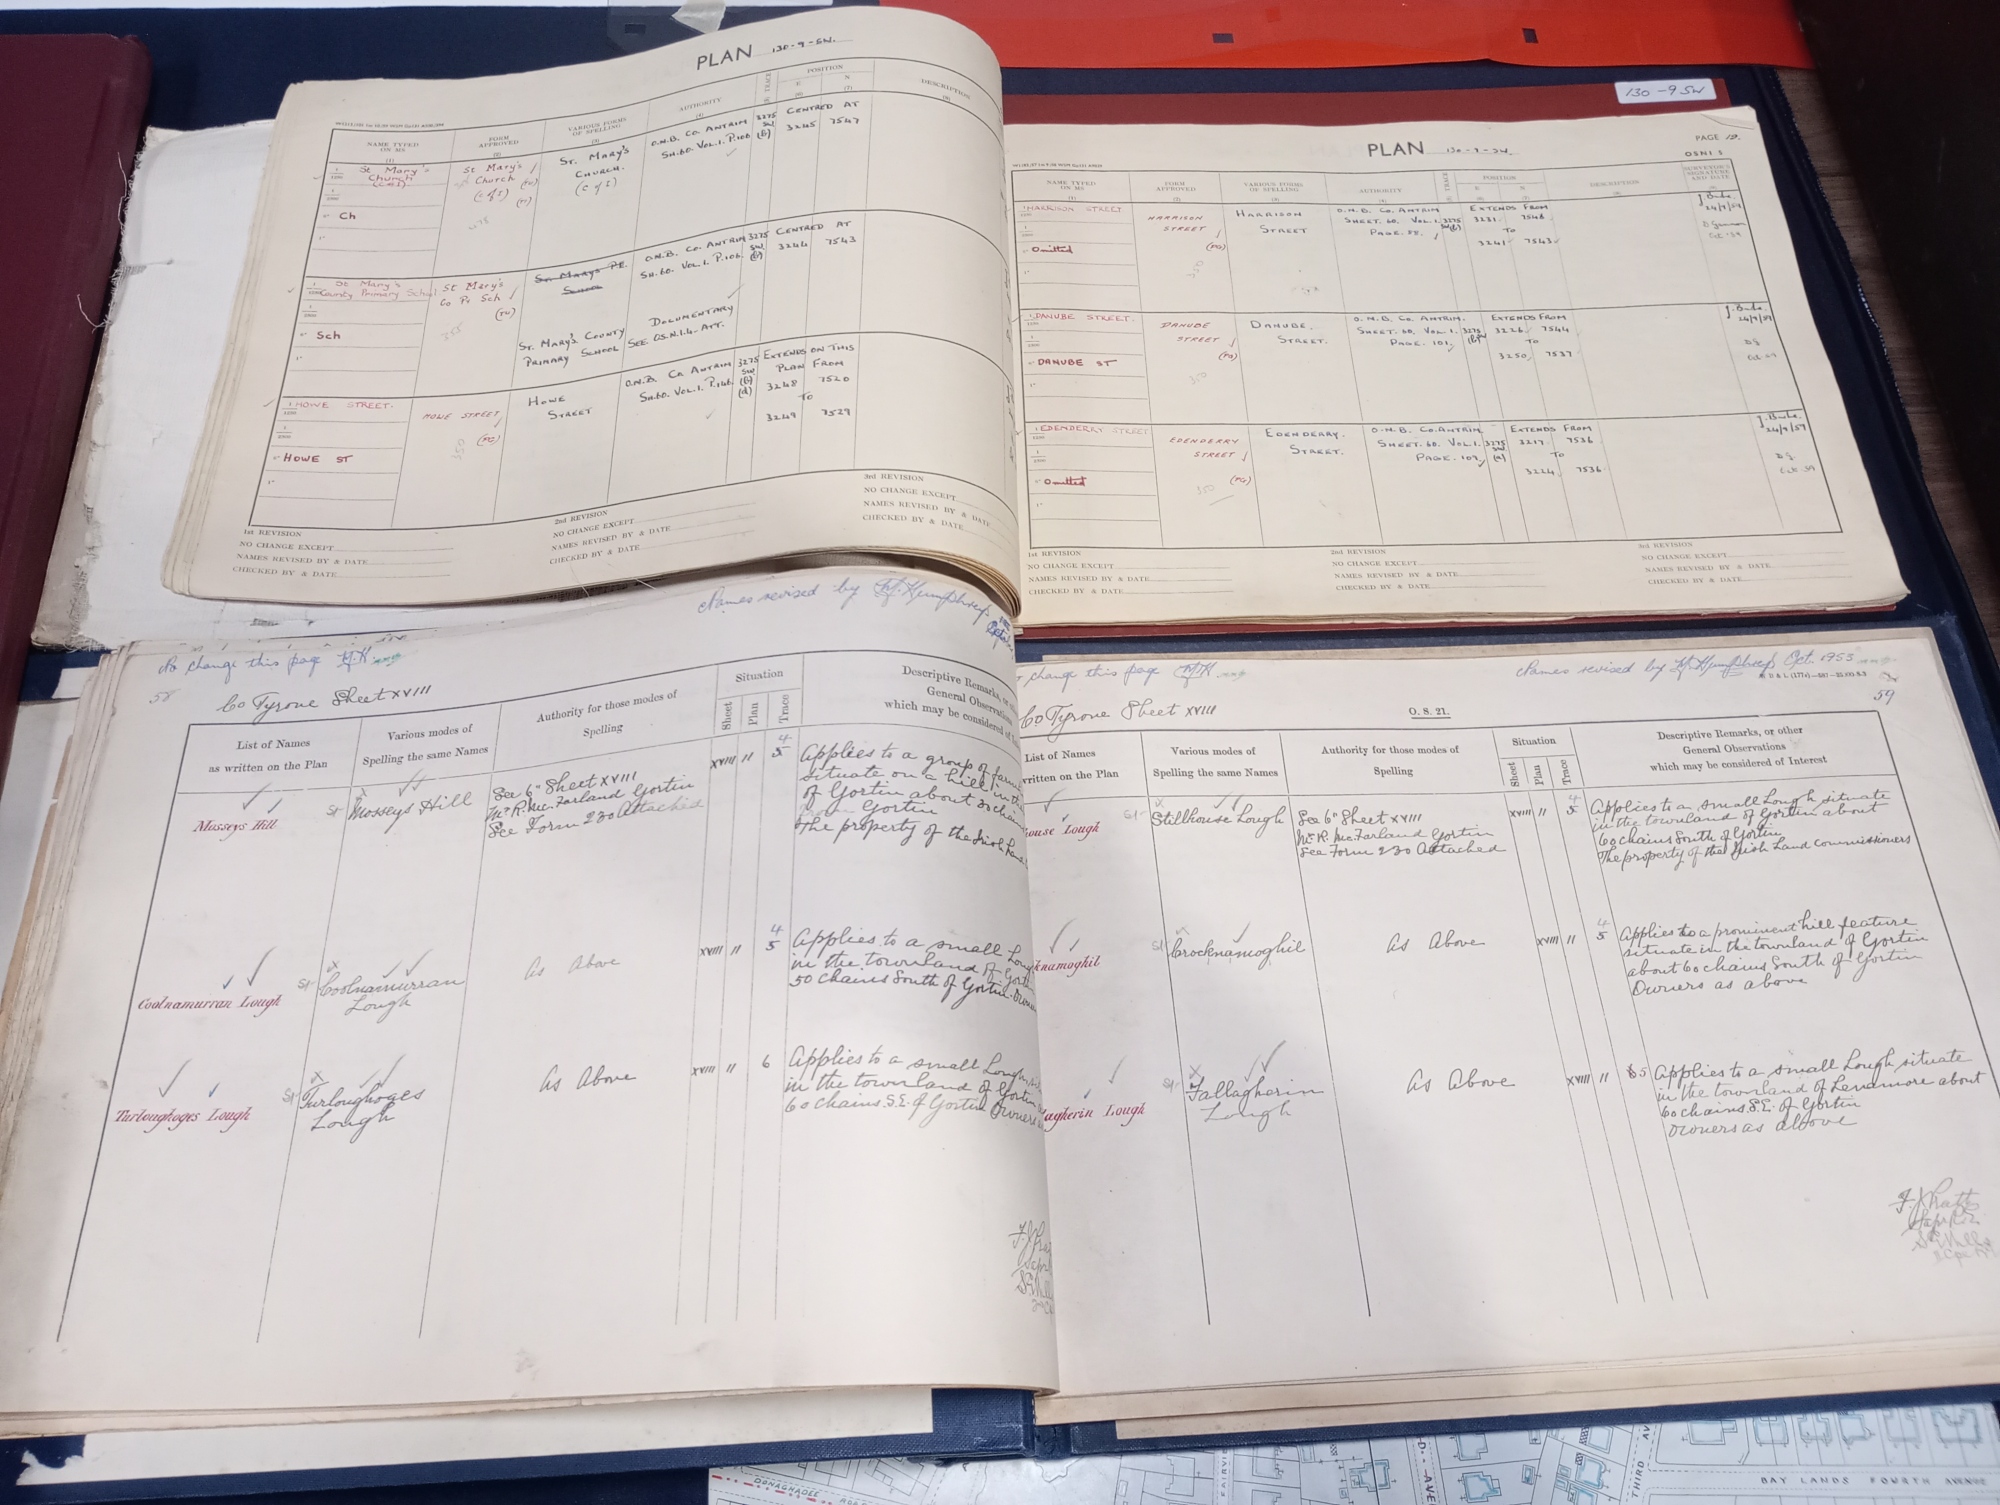 PLAN 130-9-SW.
NAME TYPED ON MS
(1)
FORM APPROVED
(2)
VARIOUS FORMS OF SPELLING
(3)
AUTHORITY
(4)
TRACE
POSITION
E
(6)
N
(7)
DESCRIPTION
(8)
St Mary's Church (C of I)
Ch
St Mary's Church (C of I)
ST. MARY'S CHURCH. (C of I)
O.N.B. CO. ANTRIM
SH. 60. VOL. 1. P. 106
3275 SW (b)
CENTRED AT
3245 7547
St Mary's
County Primary School
Sch
St Mary's
Co Pr Sch
ST. MARY'S P.E. SCHOOL
ST. MARY'S COUNTY
PRIMARY SCHOOL
O.N.B. CO. ANTRIM
SH. 60. VOL. 1. P. 106.
DOCUMENTARY
SEE O.S.N.I.4. ATT.
3275 SW (b)
CENTRED AT
3244 7543
HOWE STREET.
HOWE ST
HOWE STREET
HOWE STREET
O.N.B. CO. ANTRIM
SH. 60. VOL. 1. P. 146.
3275 SW (b) (d)
EXTENDS ON THIS
PLAN FROM
3248 7520
TO
3249 7529
1st REVISION
NO CHANGE EXCEPT
NAMES REVISED BY & DATE
CHECKED BY & DATE
2nd REVISION
NO CHANGE EXCEPT
NAMES REVISED BY & DATE
CHECKED BY & DATE
3rd REVISION
NO CHANGE EXCEPT
NAMES REVISED BY & DATE
CHECKED BY & DATE
130-9 SW
PLAN 130-9-SW.
PAGE 12.
OSNI 5
NAME TYPED ON MS
FORM APPROVED
VARIOUS FORMS OF SPELLING
AUTHORITY
TRACE
POSITION
E
N
DESCRIPTION
SURVEYOR'S SIGNATURE AND DATE
HARRISON STREET
Omitted
HARRISON STREET
(FG)
HARRISON STREET
O.N.B. CO. ANTRIM
SHEET. 60. VOL. 1.
PAGE. 88.
EXTENDS FROM
3231 7548
TO
3241 7543
24/9/59
DANUBE STREET.
DANUBE ST
DANUBE STREET
(FG)
DANUBE. STREET.
O.N.B. CO. ANTRIM.
SHEET. 60. VOL. 1.
PAGE. 101.
EXTENDS FROM
3226 7544
TO
3250 7537
24/9/59
EDENDERRY STREET
Omitted
EDENDERRY STREET
(FG)
EDENDERRY. STREET.
O.N.B. CO. ANTRIM
SHEET. 60. VOL. 1.
PAGE. 109.
3275 SW (a)
EXTENDS FROM
3217 7536
TO
3224 7536
24/9/59
1st REVISION
NO CHANGE EXCEPT
NAMES REVISED BY & DATE
CHECKED BY & DATE
2nd REVISION
NO CHANGE EXCEPT
NAMES REVISED BY & DATE
CHECKED BY & DATE
3rd REVISION
NO CHANGE EXCEPT
NAMES REVISED BY & DATE
CHECKED BY & DATE
Names revised by M. Humphreys
No change this page M.H.
58
Co Tyrone Sheet XVIII
List of Names
as written on the Plan
Various modes of
Spelling the same Names
Authority for those modes of
Spelling
Situation
Sheet
Plan
Trace
Descriptive Remarks, or
General Observations
which may be considered of
Mosseys Hill
Mosseys Hill
See 6" Sheet XVIII
Mr R. McFarland Gortin
See Form 230 Attached
XVIII 11 4 5
Applies to a group of
situate on a hill in the
of Gortin about 20 chains
from Gortin
The property of the Irish
Coolnamurran Lough
Coolnamurran
Lough
As Above
XVIII 11 4 5
Applies to a small
in the townland of
50 chains South of Gortin.
Turloughoges Lough
Turloughoges
Lough
As Above
XVIII 11 6
Applies to a small Lough
in the townland of Gortin
60 chains S.E. of Gortin Owners
change this page M.H.
Names revised by M. Humphreys Oct. 1953
59
Co Tyrone Sheet XVIII
O. S. 21.
List of Names
written on the Plan
Various modes of
Spelling the same Names
Authority for those modes of
Spelling
Situation
Sheet
Plan
Trace
Descriptive Remarks, or other
General Observations
which may be considered of Interest
ouse Lough
Stillhouse Lough
See 6" Sheet XVIII
Mr R. McFarland Gortin
See Form 230 Attached
XVIII 11 4 5
Applies to a small Lough situate
in the townland of Gortin about
60 chains South of Gortin
The property of the Irish Land Commissioners
knamoghil
Crocknamoghil
As Above
XVIII 11 4 5
Applies to a prominent hill feature
situate in the townland of Gortin
about 60 chains South of Gortin
Owners as above
agherin Lough
Fallagherin
Lough
As Above
XVIII 11 5
Applies to a small Lough situate
in the townland of Lenamore about
60 chains S.E. of Gortin
Owners as above
DONAGHADEE
AVE
THIRD AV
BAY LANDS FOURTH AVENUE